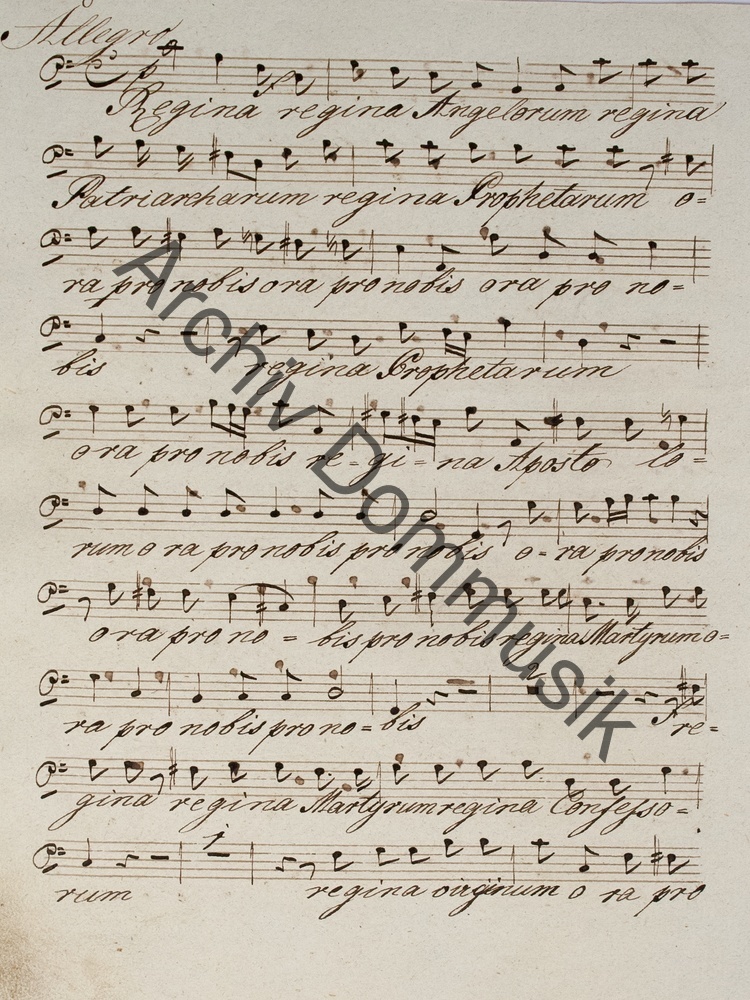 Allegro
Regina regina Angelorum regina
Patriarcharum regina Prophetarum o=
ra pro nobis ora pro nobis ora pro no=
bis regina Prophetarum
ora pro nobis re-gi-na Aposto lo=
rum o ra pro nobis pro nobis o-ra pro nobis
ora pro no=bis pro nobis regina Martyrum o=
ra pro nobis pro no=bis 2 re=
gina regina Martyrum regina Confesso=
1
rum regina virginum o ra pro
Archiv Dommusik